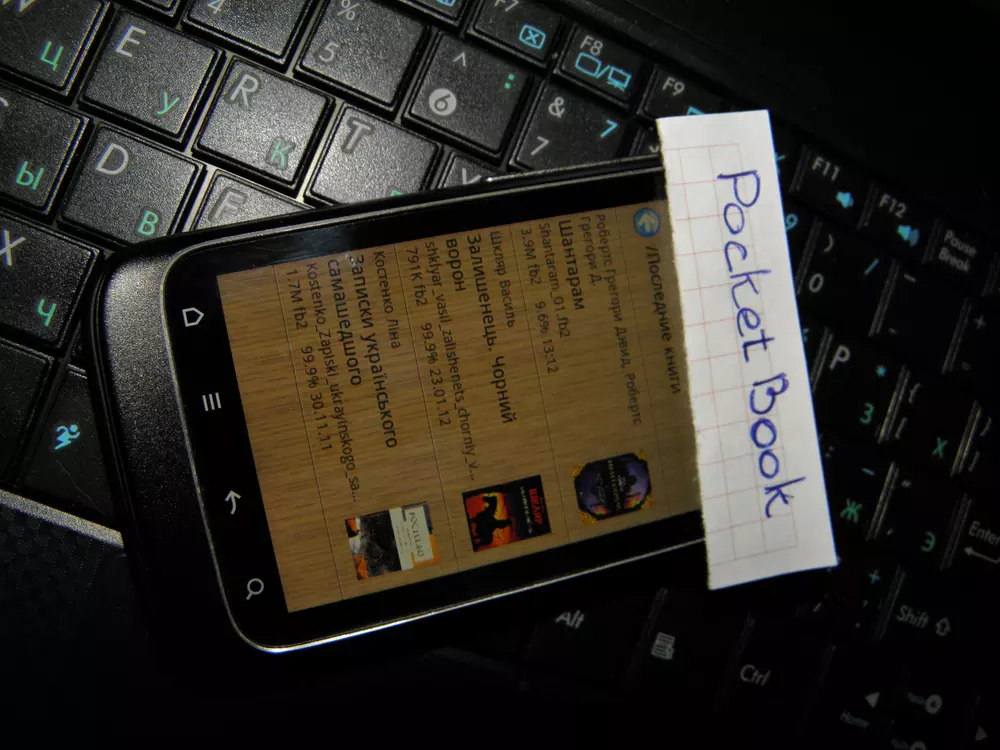 Pocket Book
/Последние книги
Робертс Грегори Дэвид, Робертс
Грегори Д.
Шантарам
Shantaram_01.fb2
3.9M fb2 9.6% 13:12
Шкляр Василь
Залишенець. Чорний
ворон
shklyar_vasil_zalishenets_chorniy_v...
791K fb2 99.9% 23.01.12
Костенко Ліна
Записки українського
самашедшого
Kostenko_Zapiski_ukrayinskogo_sa...
1.7M fb2 99.9% 30.11.11
4
%
5
^
6
:
&
7
7
F7
F8
F9
F11
F12
Pause
Break
W
Ц
E
У
R
К
T
Ы
D
В
F
X
Ч
9
)
0
/
-
+
P
З
{
[
Х
Ж
Э
Enter
Shift
Alt
Ctrl
Home